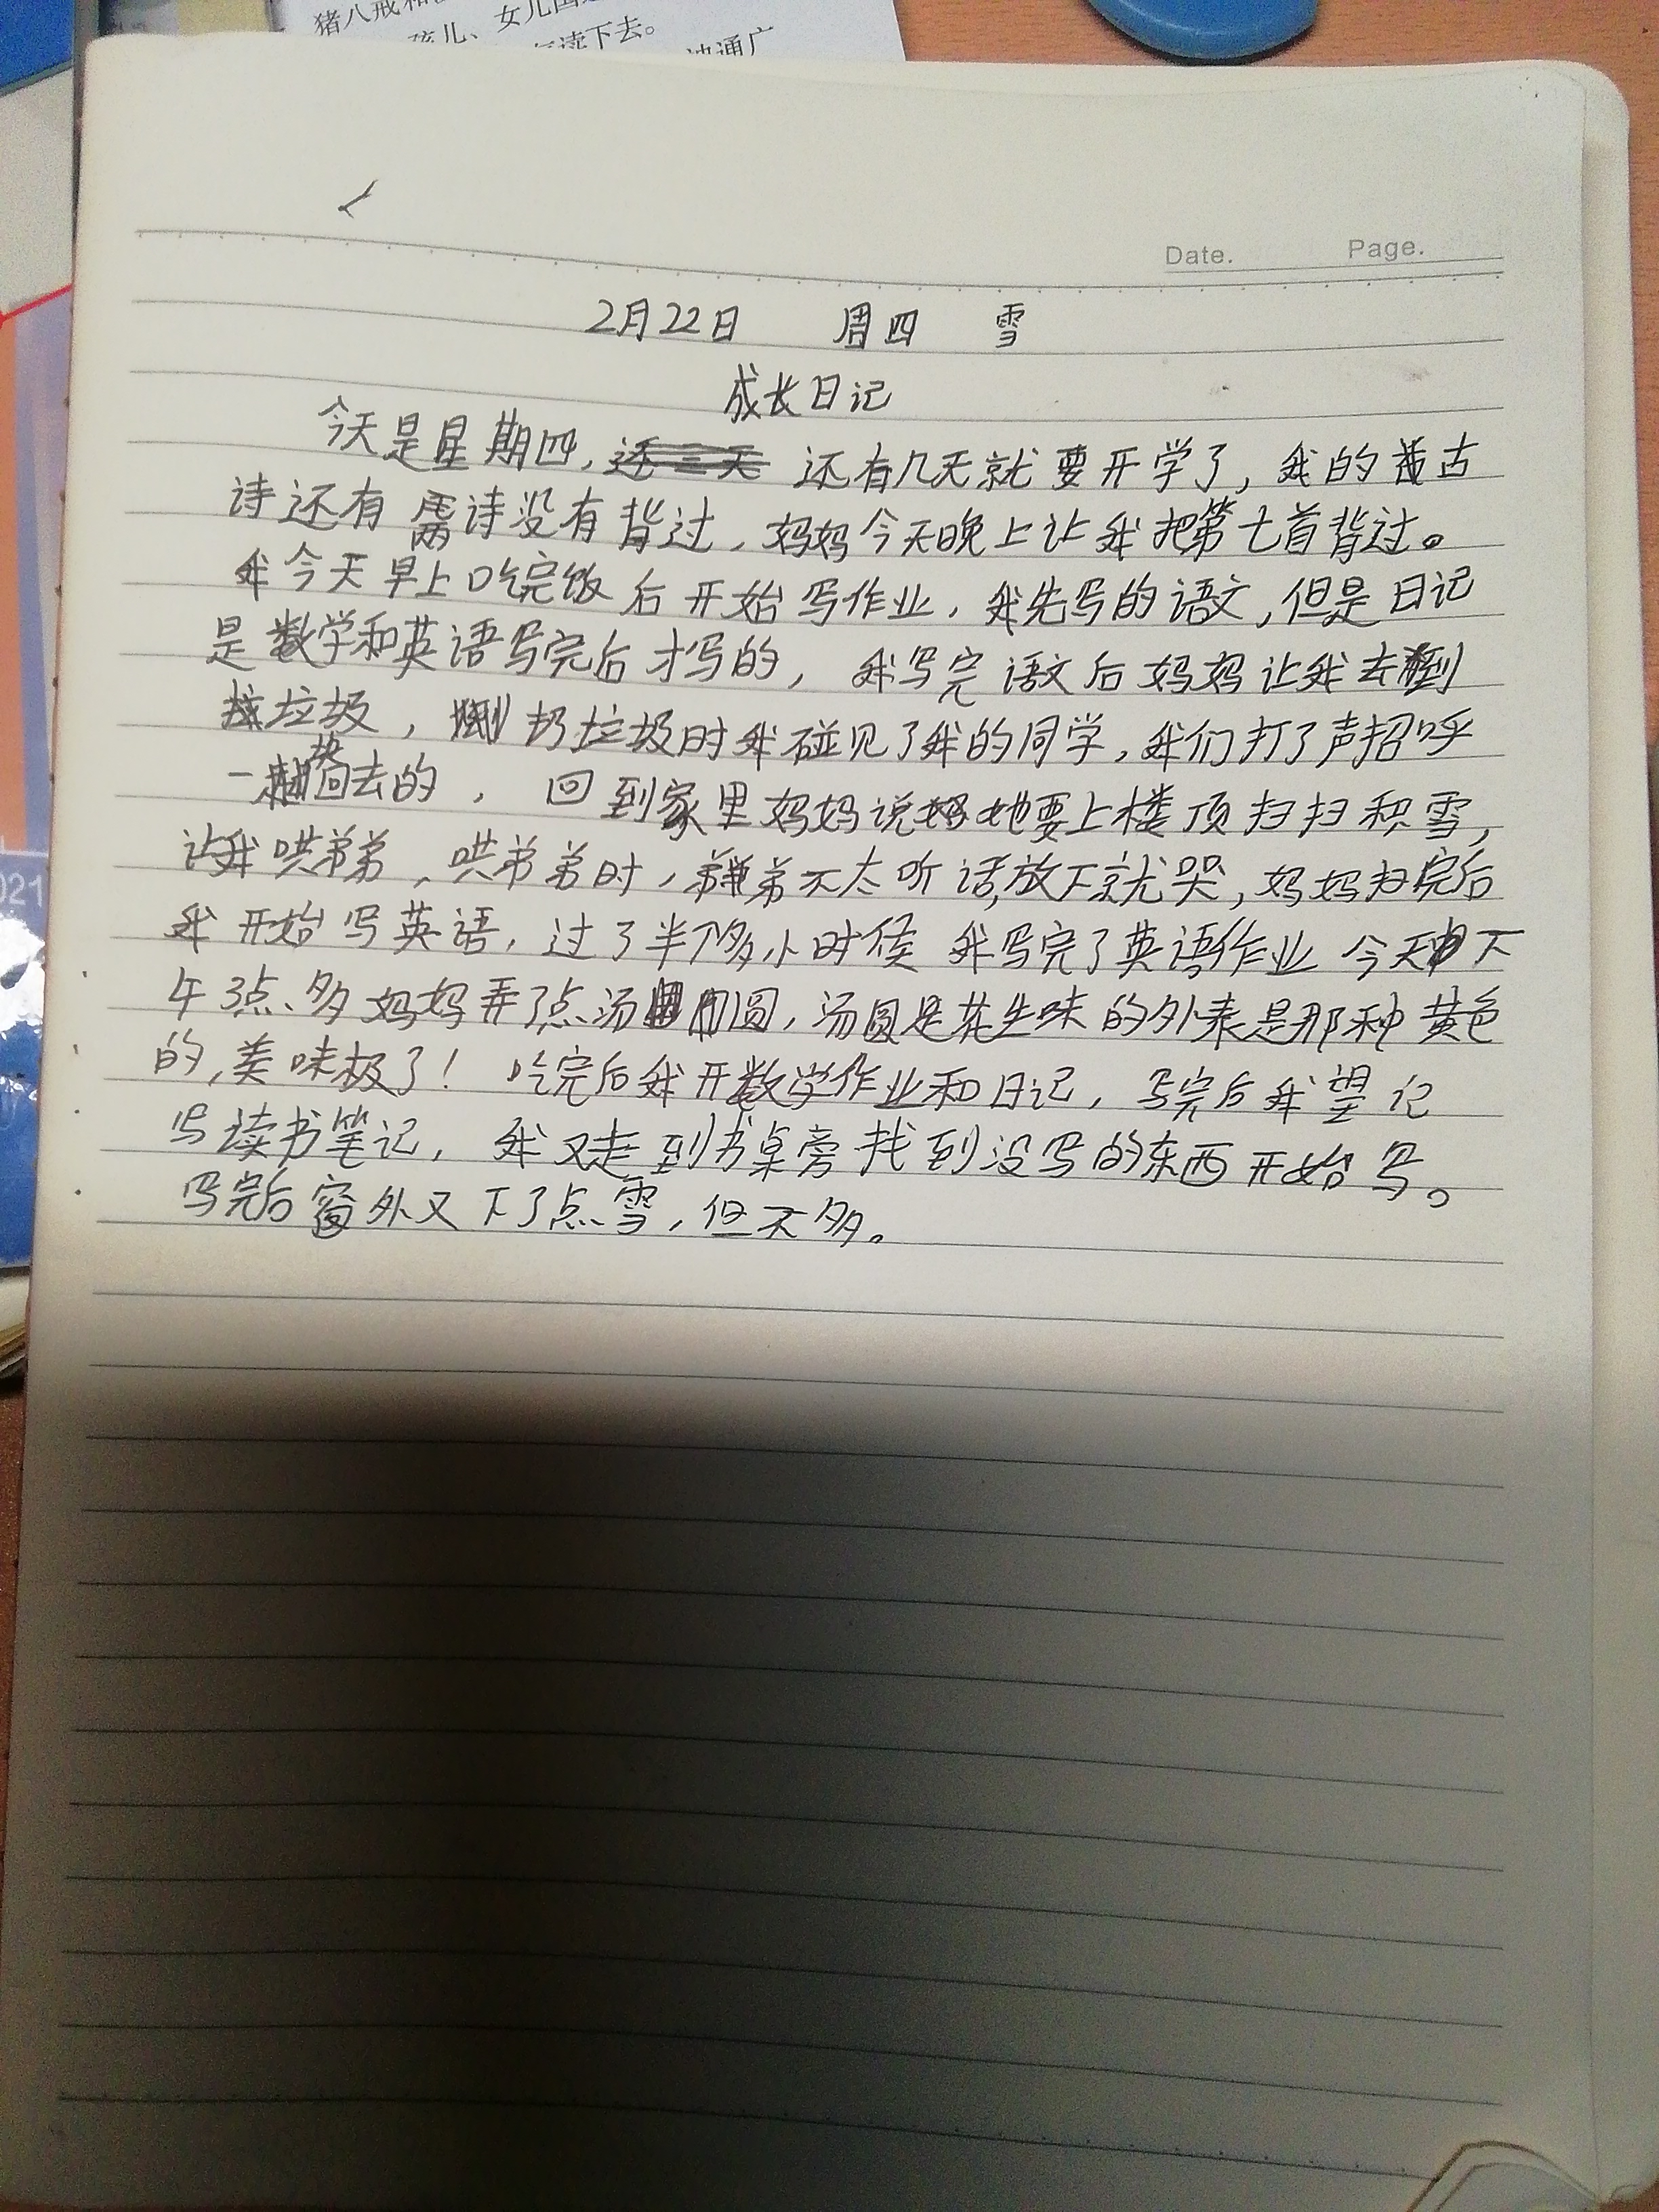 猪八戒和
孩儿、女儿国
读下去。
冲通广
Date. Page.
2月22日 周四 雪
成长日记
今天是星期四,还有几天就要开学了,我的古
诗还有两诗没有背过,妈妈今天晚上让我把第七首背过。
我今天早上吃完饭后开始写作业,我先写的语文,但是日记
是数学和英语写完后才写的,我写完语文后妈妈让我去倒
垃圾,扔垃圾时我碰见了我的同学,我们打了声招呼
一块回去的,回到家里妈妈说她要上楼顶扫扫积雪,
让我哄弟弟,哄弟弟时,弟弟不太听话,放下就哭,妈妈扫完后
我开始写英语,过了半个多小时侯我写完了英语作业今天下
午3点多妈妈弄了点汤圆,汤圆是花生味的外表是那种黄色
的,美味极了!吃完后我开数学作业和日记,写完后我望记
写读书笔记,我又走到书桌旁找到没写的东西开始写。
写完后窗外又下了点雪,但不多。
021